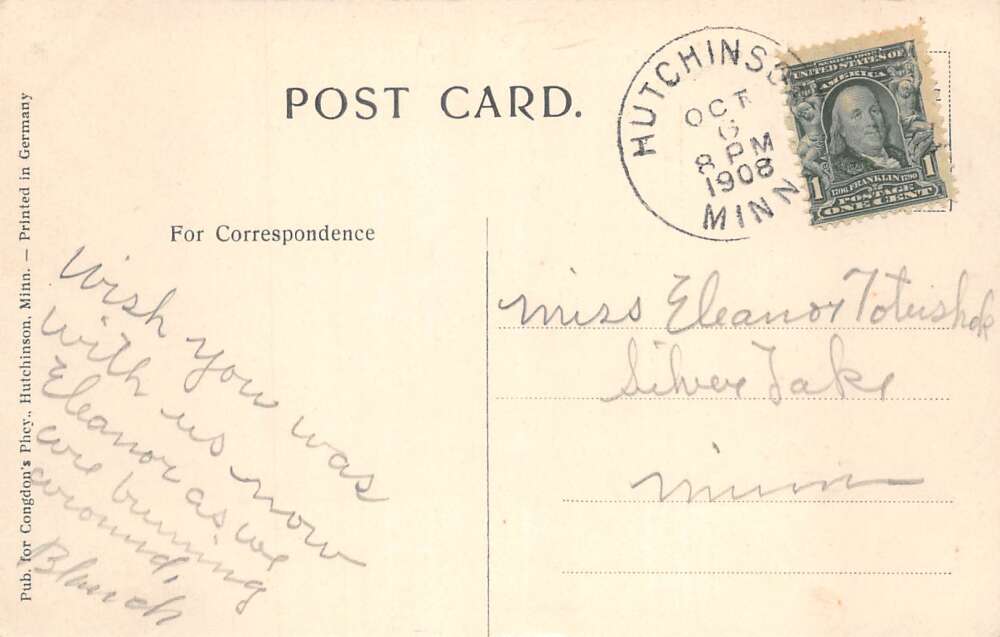 POST CARD.
HUTCHINSO
OCT
6
8 PM
1908
MINN
SERIES 1902
UNITED STATES OF
AMERICA
1 1706 FRANKLIN 1790 1
POSTAGE
ONE CENT
For Correspondence
Wish you was
with us now
Eleanor as we
are buming
around.
Blanch
Miss Eleanor Totushek
Silver Lake
Minn
Pub. for Congdon's Phcy., Hutchinson, Minn. — Printed in Germany